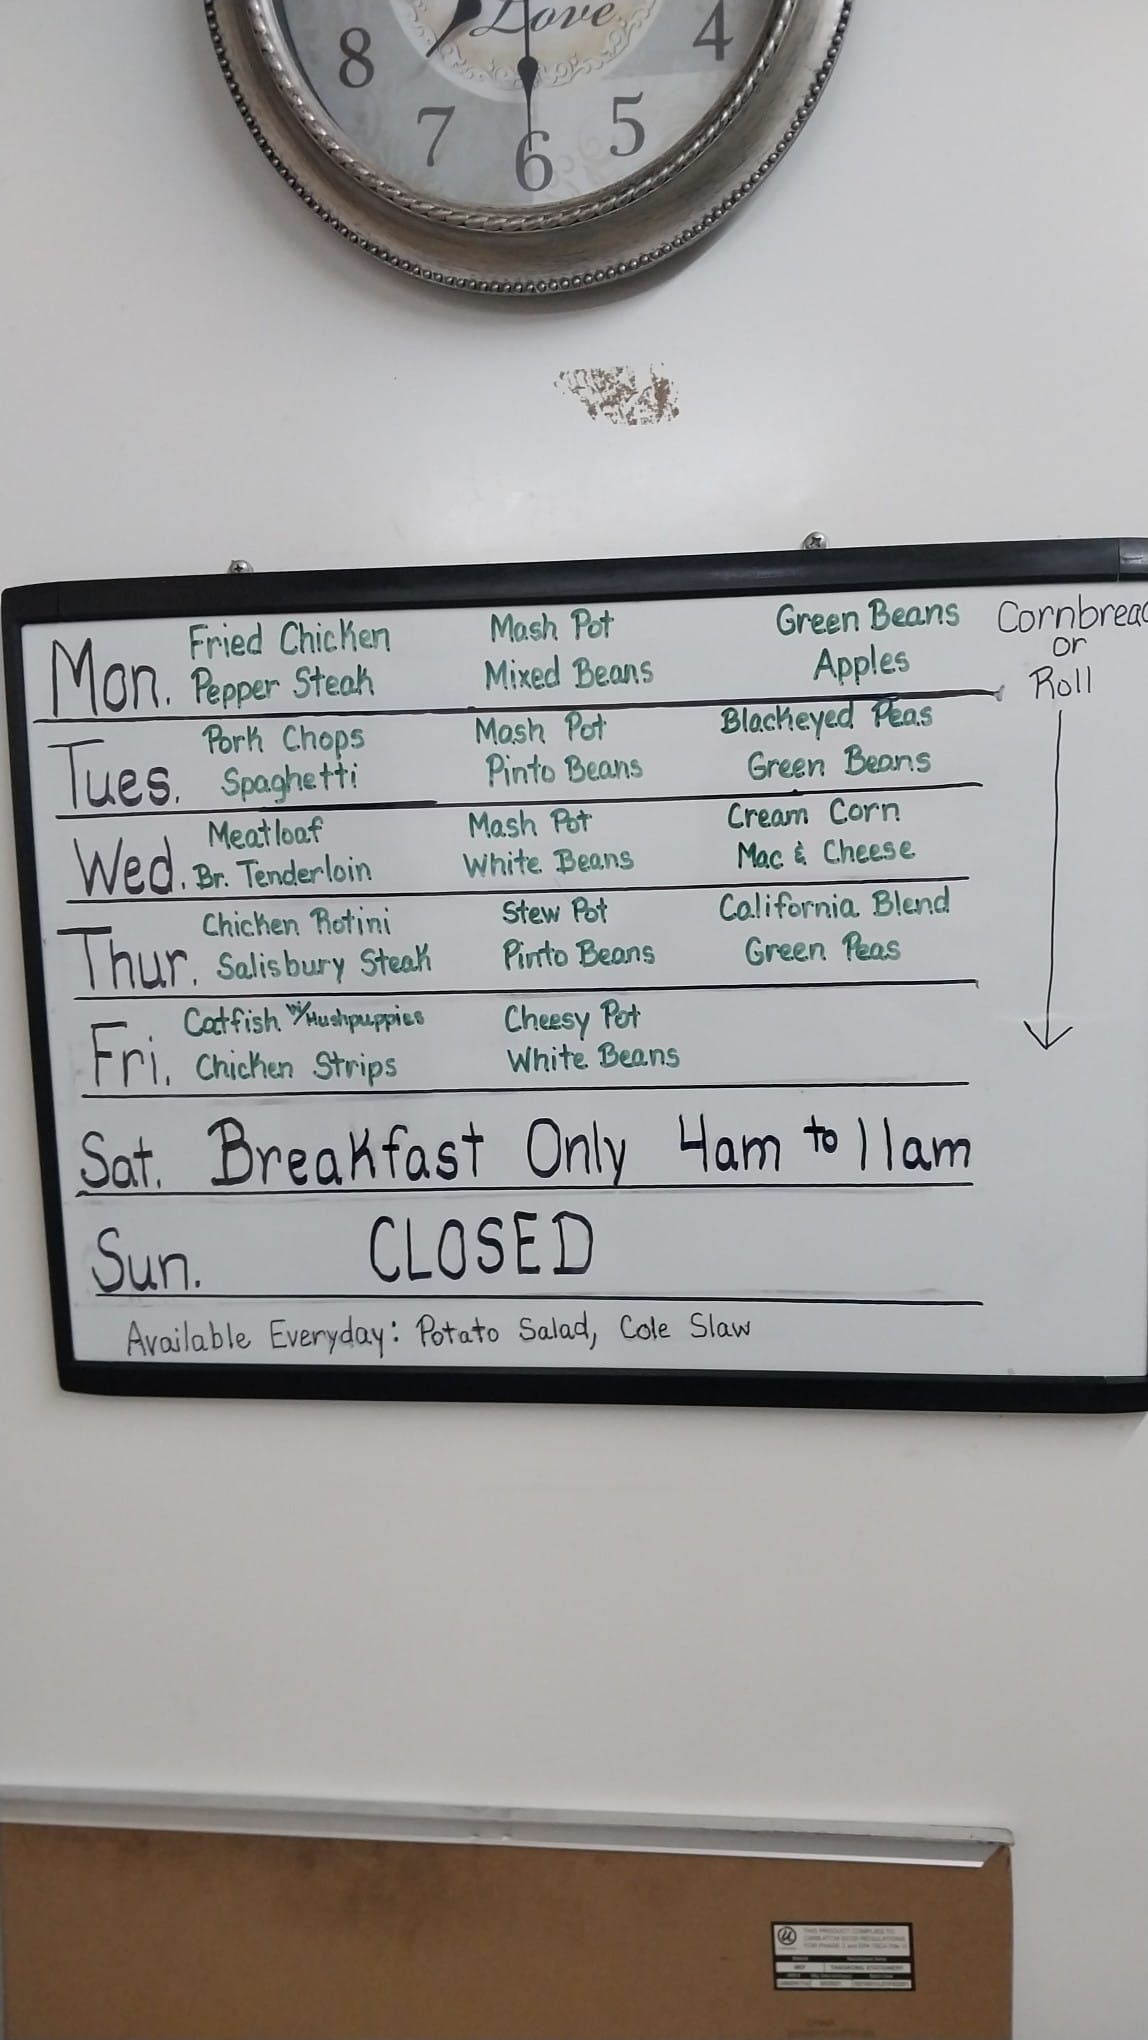 Love
8
4
7
5
6
Mon. Fried Chicken Mash Pot Green Beans Cornbread
Pepper Steak Mixed Beans Apples or
Roll
Tues. Pork Chops Mash Pot Blackeyed Peas
Spaghetti Pinto Beans Green Beans
Wed. Meatloaf Mash Pot Cream Corn
Br. Tenderloin White Beans Mac & Cheese
Thur. Chicken Rotini Stew Pot California Blend
Salisbury Steak Pinto Beans Green Peas
Fri. Catfish w/Hushpuppies Cheesy Pot
Chicken Strips White Beans
Sat. Breakfast Only 4am to 11am
Sun. CLOSED
Available Everyday: Potato Salad, Cole Slaw
THIS PRODUCT COMPLIES TO